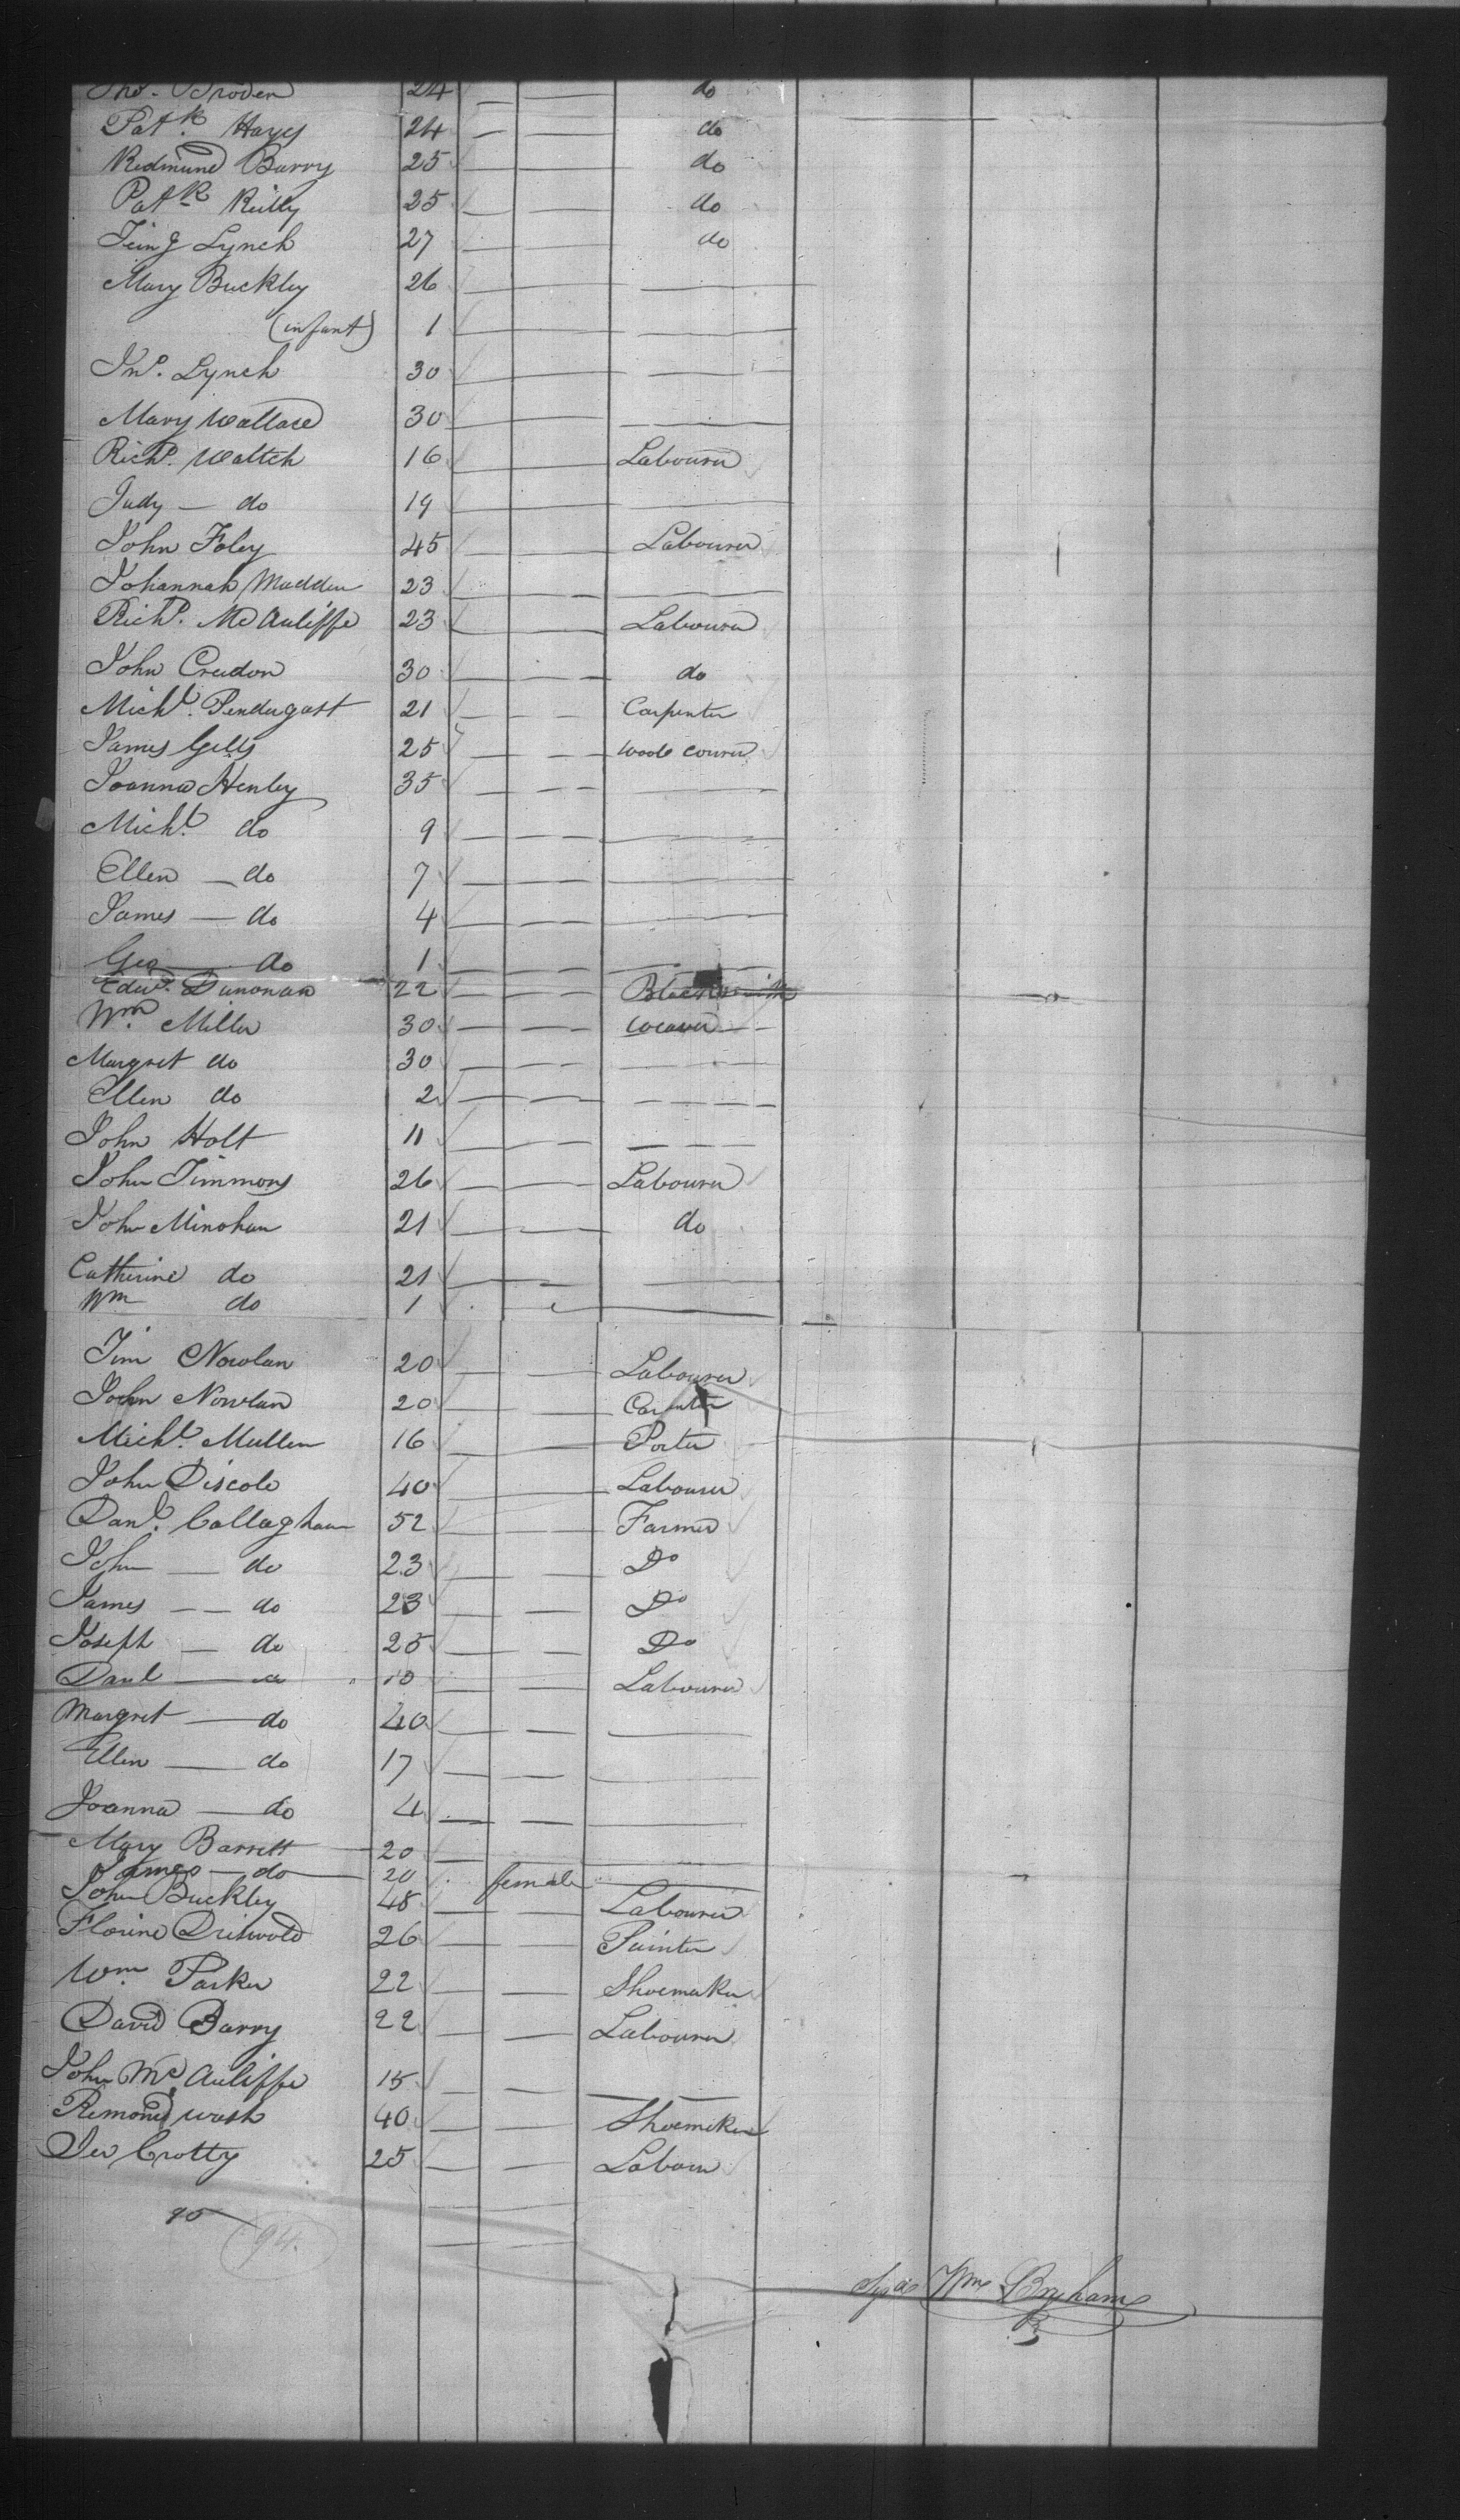 24 do
Patk. Hayes 24 do
Redmund Barry 25 do
Patk Reilly 25 do
Lynch 27 do
Mary Buckley 26
(infant) 1
Jno. Lynch 30
Mary Wallace 30
Richd. Waltch 16 Labourer
Judy do 19
John Foley 45 Labourer
Johannah Madden 23
Richd. McAuliffe 23 Labourer
John Creedon 30 do
Michl. Pendergast 21 Carpenter
James Gells 25
Joanna Henley 35
Michl. do 9
Ellen do 7
James do 4
Geo do 1
Edwd. Dunovan 22 Blacksmith
Wm. Miller 30 weaver
Margret do 30
Ellen do 2
John Holt 11
John Timmons 26 Labourer
John Minohan 21 do
Catherine do 21
Wm do 1
Tim Nowlan 20 Labourer
John Nowlan 20
Michl. Mullen 16 Porter
John Discole 40 Labourer
Danl. Callaghan 52 Farmer
John do 23 Do
James do 23 Do
Joseph do 25 Do
Danl do 10 Labourer
Margret do 40
Ellen do 17
Joanna do 4
Mary Barrett 20
James do 20 female
John Buckley 48 Labourer
26 Painter
Wm Parker 22 Shoemaker
David Barry 22 Labourer
John McAuliffe 15
Remond Wash 40 Shoemaker
Crotty 25 Labour
95
94.
Sigd Wm Bryham